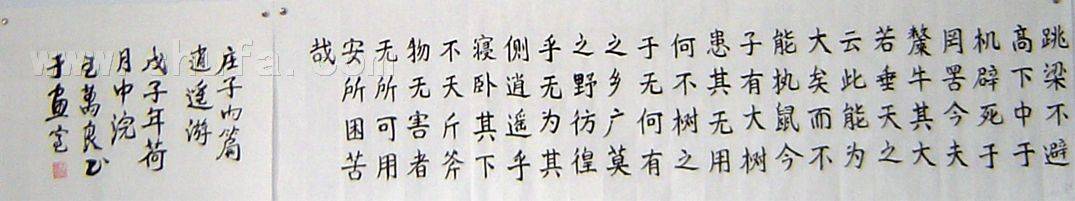 跳梁不避
高下中于
机辟死于
罔罟今夫
斄牛其大
若垂天之
云此能为
大矣而不
能执鼠今
子有大树
患其无用
何不树之
于无何有
之乡广莫
之野彷徨
乎无为其
侧逍遥乎
寝卧其下
不夭斤斧
物无害者
无所可用
安所困苦
哉
庄子内篇
逍遥游
戊子年荷
月中浣
萬良书
于畫室